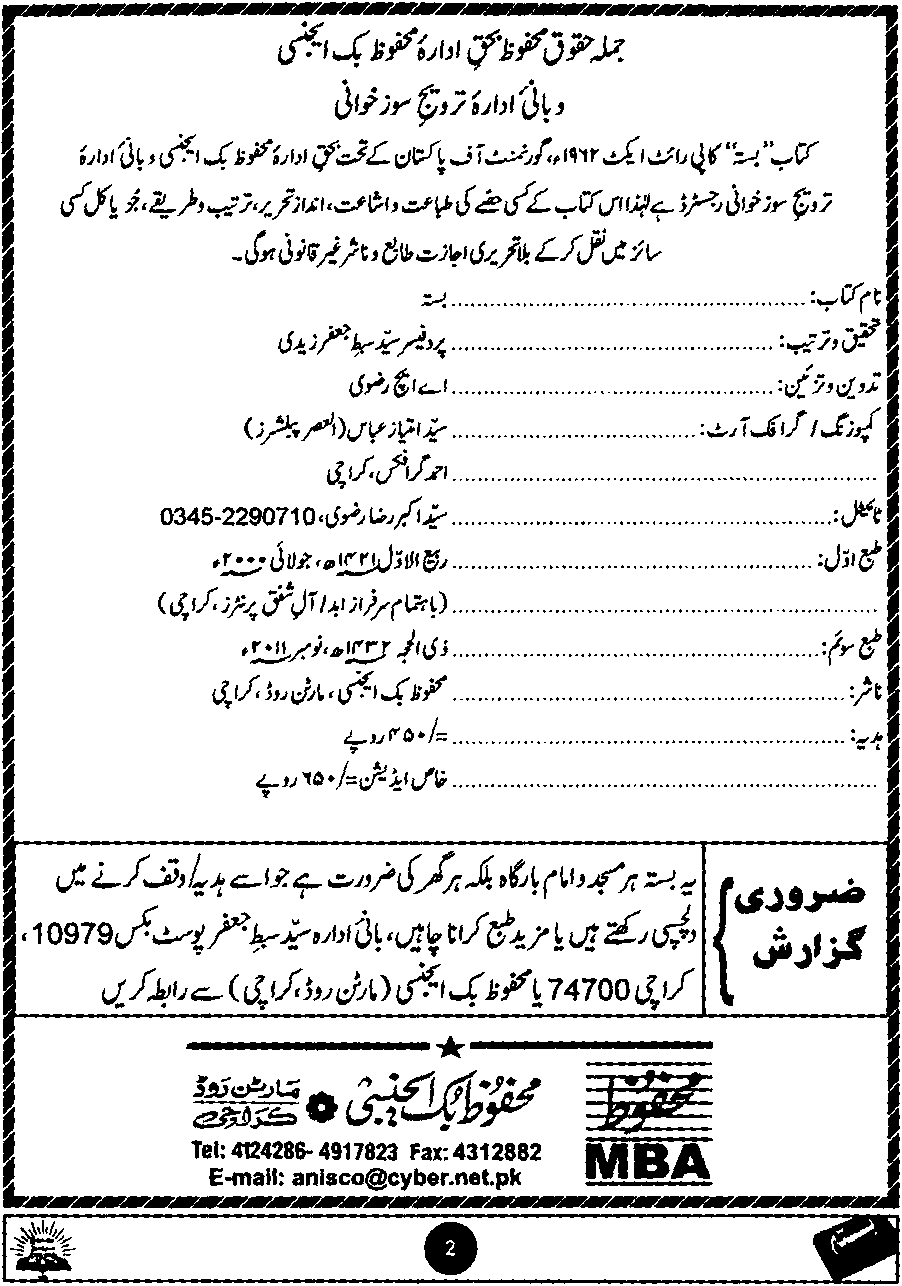 جملہ حقوق محفوظ بحقِ ادارۂ محفوظ بک ایجنسی
و بانیٔ ادارۂ ترویجِ سوز خوانی
کتاب ”بستہ“ کاپی رائٹ ایکٹ ۱۹۶۲ء، گورنمنٹ آف پاکستان کے تحت بحقِ ادارۂ محفوظ بک ایجنسی و بانیٔ ادارۂ
ترویجِ سوز خوانی رجسٹرڈ ہے لہٰذا اس کتاب کے کسی حصّے کی طباعت و اشاعت، انداز تحریر، ترتیب و طریقے، جُز یا کل کسی
سائز میں نقل کر کے بلا تحریری اجازت طابع و ناشر غیر قانونی ہوگی۔
نام کتاب: بستہ
تحقیق و ترتیب: پروفیسر سیّد سبطِ جعفر زیدی
تدوین و تزئین: اے ایچ رضوی
کمپوزنگ / گرافک آرٹ: سیّد امتیاز عباس (العصر پبلشرز)
احمد گرافکس، کراچی
ٹائیٹل: سیّد اکبر رضا رضوی، 0345-2290710
طبع اوّل: ربیع الاوّل ۱۴۲۱ھ، جولائی ۲۰۰۰ء
(باہتمام سرفراز ابد / آلِ شفق پرنٹرز، کراچی)
طبع سوئم: ذی الحجہ ۱۴۳۲ھ، نومبر ۲۰۱۱ء
ناشر: محفوظ بک ایجنسی، مارٹن روڈ، کراچی
ہدیہ: =/۴۵۰ روپے
خاص ایڈیشن =/۶۵۰ روپے
ضروری گزارش
یہ بستہ ہر مسجد و امام بارگاہ بلکہ ہر گھر کی ضرورت ہے جو اسے ہدیہ/ وقف کرنے میں
دلچسپی رکھتے ہیں یا مزید طبع کرانا چاہیں، بانیٔ ادارہ سیّد سبطِ جعفر پوسٹ بکس 10979،
کراچی 74700 یا محفوظ بک ایجنسی (مارٹن روڈ، کراچی) سے رابطہ کریں
محفوظ بک ایجنسی مارٹن روڈ کراچی
محفوظ
MBA
Tel: 4124286- 4917823 Fax: 4312882
E-mail: anisco@cyber.net.pk
2
بستہ